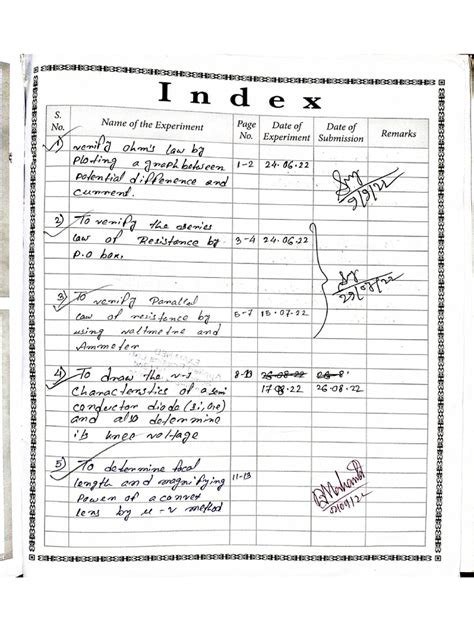 Index
S. No. Name of the Experiment Page No. Date of Experiment Date of Submission Remarks
1) verify ohm's law by
Ploting a graph between 1-2 24.06.22
Potential difference and
current.
2) To verify the series
law of Resistance by 3-4 24.06.22
P.O box.
3) To verify Parallel
law of resistance by 5-7 15.07.22
using voltmetre and
Ammeter
4) To draw the v-s 8-10 26.08.22 26-8
Characterstics of a semi 17.08.22 26.08.22
conductor diode (Si, Ge)
and also determine
its knee voltage
5) To determine focal
length and magnifying 11-13
Power of a convex
lens by u-v method